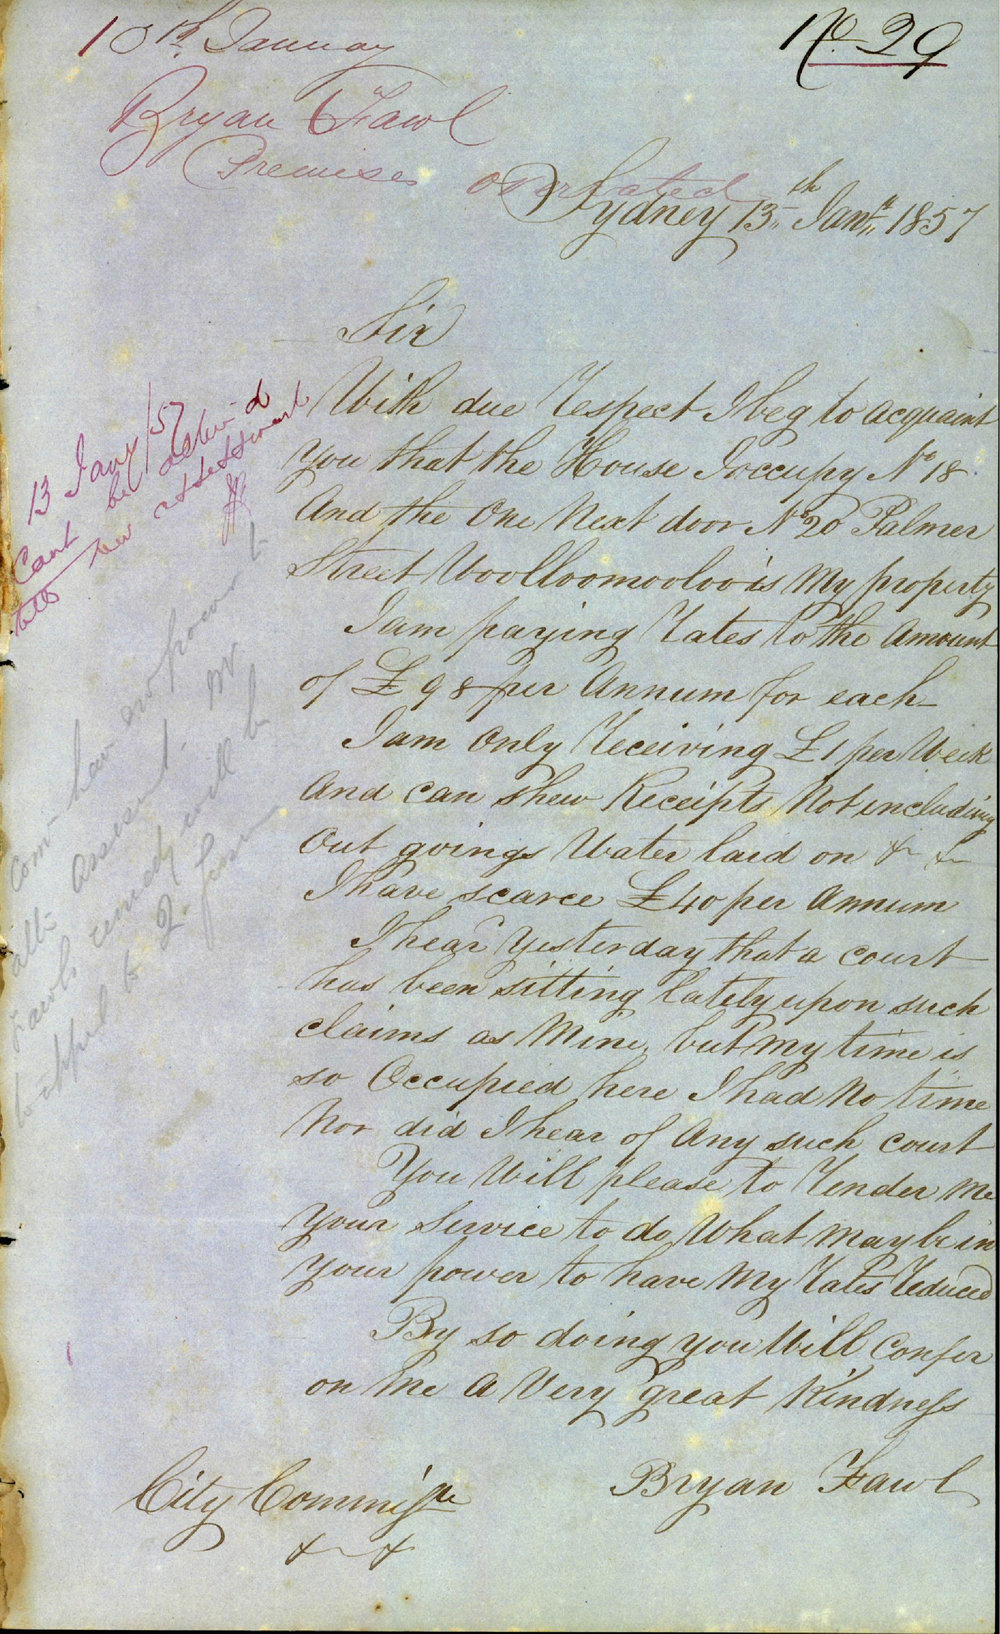 10th January
No 29
Bryan Fawl
Premises over rated
Sydney 13th Jany. 1857
Sir
With due respect I beg to acquaint
you that the House I occupy No 18
And the One Next door No 20 Palmer
Street Woolloomooloo is My property
I am paying rates to the Amount
of £98 per Annum for each
I am Only receiving £1 per Week
And can shew Receipts Not including
Out goings Water laid on &c &c
I have scarce £40 per Annum
I hear yesterday that a court
has been sitting lately upon such
claims as Mine, but My time is
so Occupied here I had No time
Nor did I hear of Any such court
You Will please to render Me
Your Service to do What May be in
Your power to have My rates reduced
By so doing you Will confer
on Me A Very great Kindness
Bryan Fawl
City Commissr
&c &c
13 Jany /57
Cant be altered
till new assessment
Com- have no power to
alter assessmt. Mr
Fawl's remedy will be
to appeal to 2